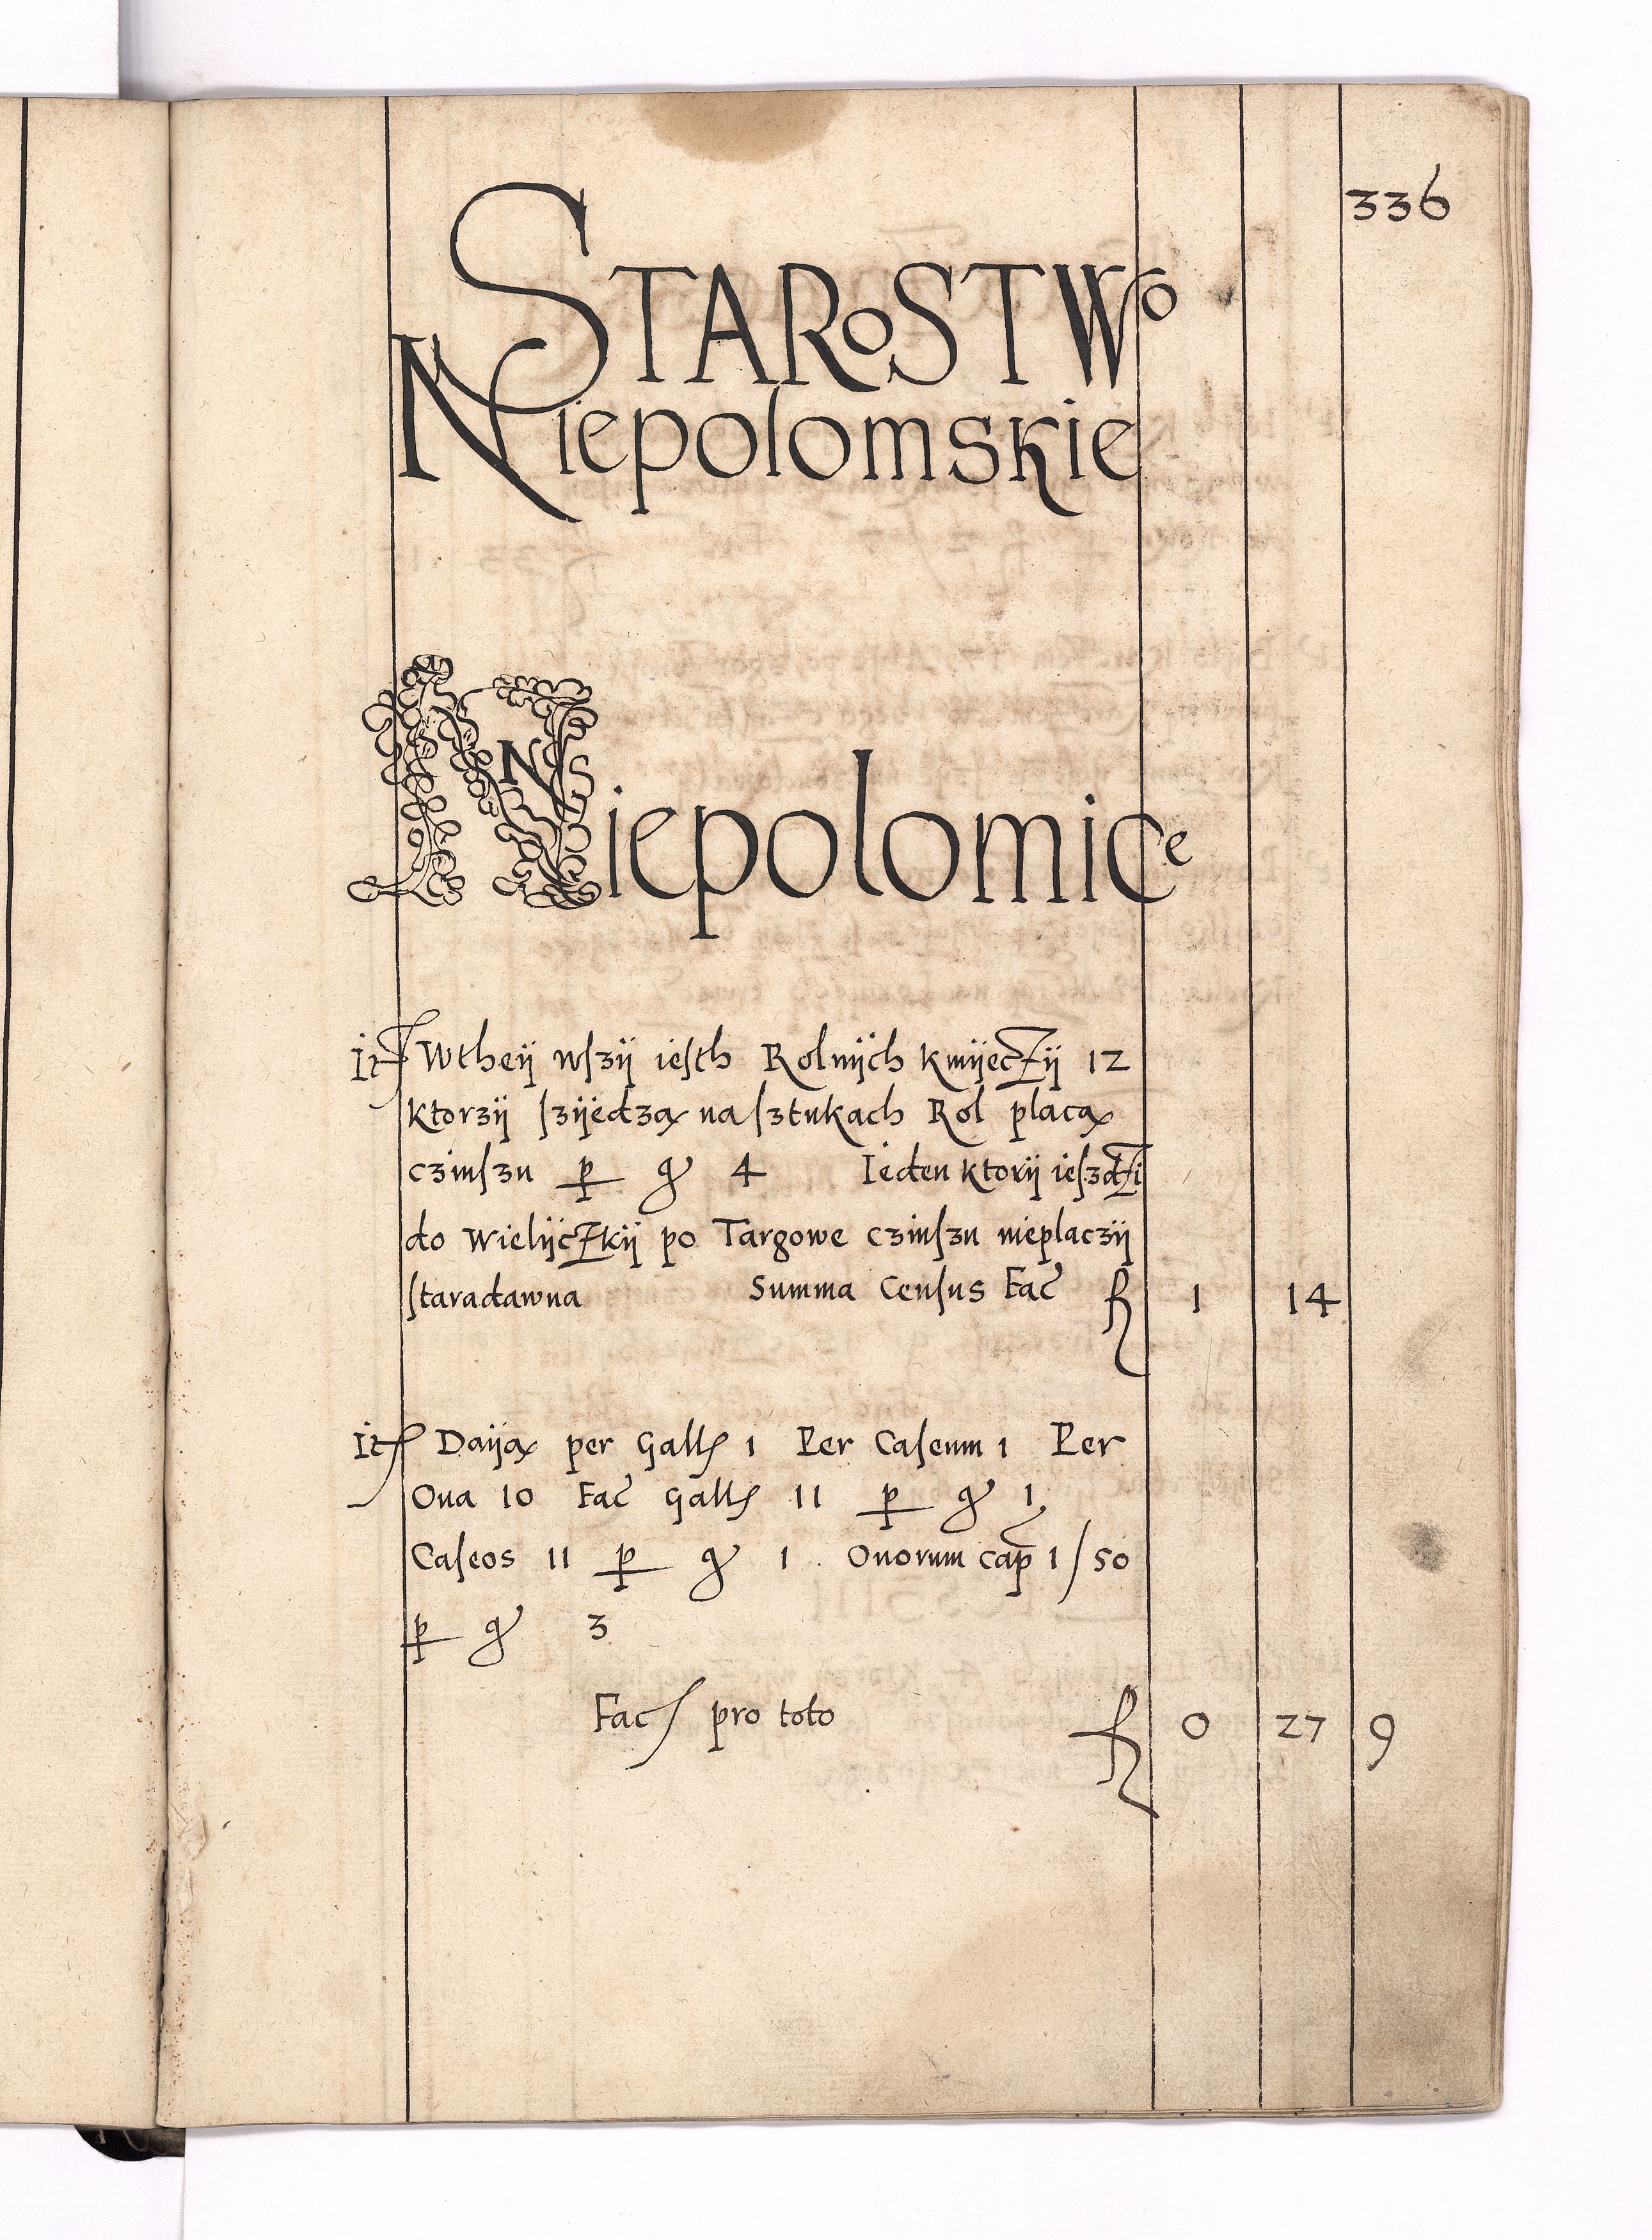 336
STAROSTWo
Niepolomskie
Niepolomice
Itͫ Wtheÿ wſzÿ ieſth Rolnÿch kmÿeczÿ 12
ktorzÿ ſzÿedzą na ſztukach Rol placą
czinſzu ꝑ gͬ 4 Ieden ktorÿ ieſzdzi
do wielÿczkÿ po Targowe czinſzu nieplaczÿ
ſtaradawna Summa Cenſus Fac̃ fl 1 14
Itͫ Daÿą per Gallͫ 1 Per Caſeum 1 Per
Oua 10 Fac̃ Gallͫ 11 ꝑ gͬ 1
Caſeos 11 ꝑ gͬ 1 Ouorum cap̃ 1/50
ꝑ gͬ 3
Facͭ pro toto fl 0 27 9